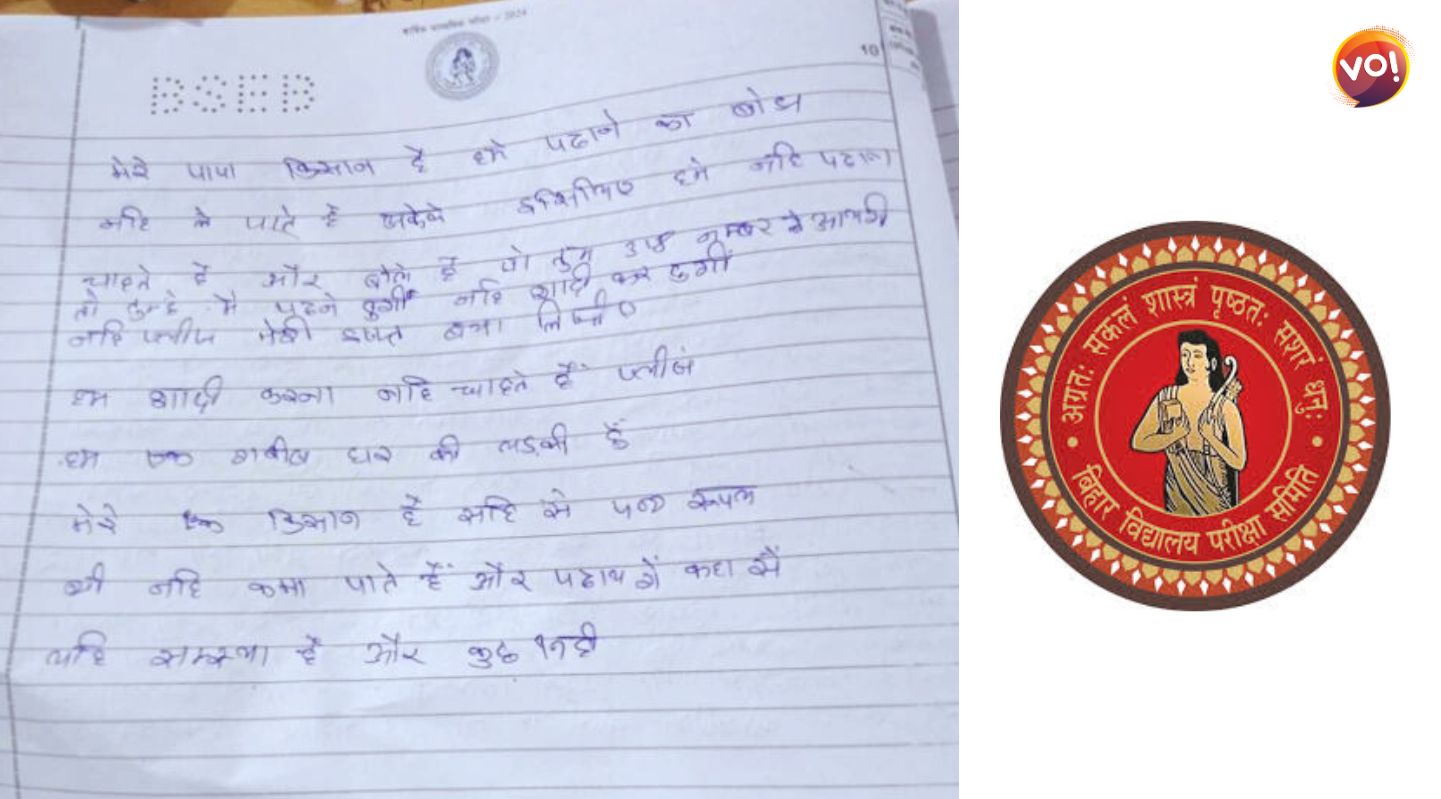 वार्षिक माध्यमिक परीक्षा - 2024
BSEB
10
मेरे पापा किसान है हमे पढाने का बोझ
नहि ले पाते है इसिलिए हमे नहि पढाना
चाहते है और बोले है तुम 318 नम्बर से आयगी
तो तुम्हे मै पढने दुगीं नहि शादी कर दुगीं
नहि प्लीज मेरी इजत बचा लिजीए
हम शादी करना नहि चाहते हैं प्लीजं
हम एक गरीब घर की लड़की हैं
मेरे किसान है सहि से रूपए
की नहि कमा पाते हैं और पढाय गें कहा सें
यहि समस्या है और कुछ नही
VO!
अग्रतः सकलं शास्त्रं पृष्ठतः सशरं धनुः
बिहार विद्यालय परीक्षा समिति